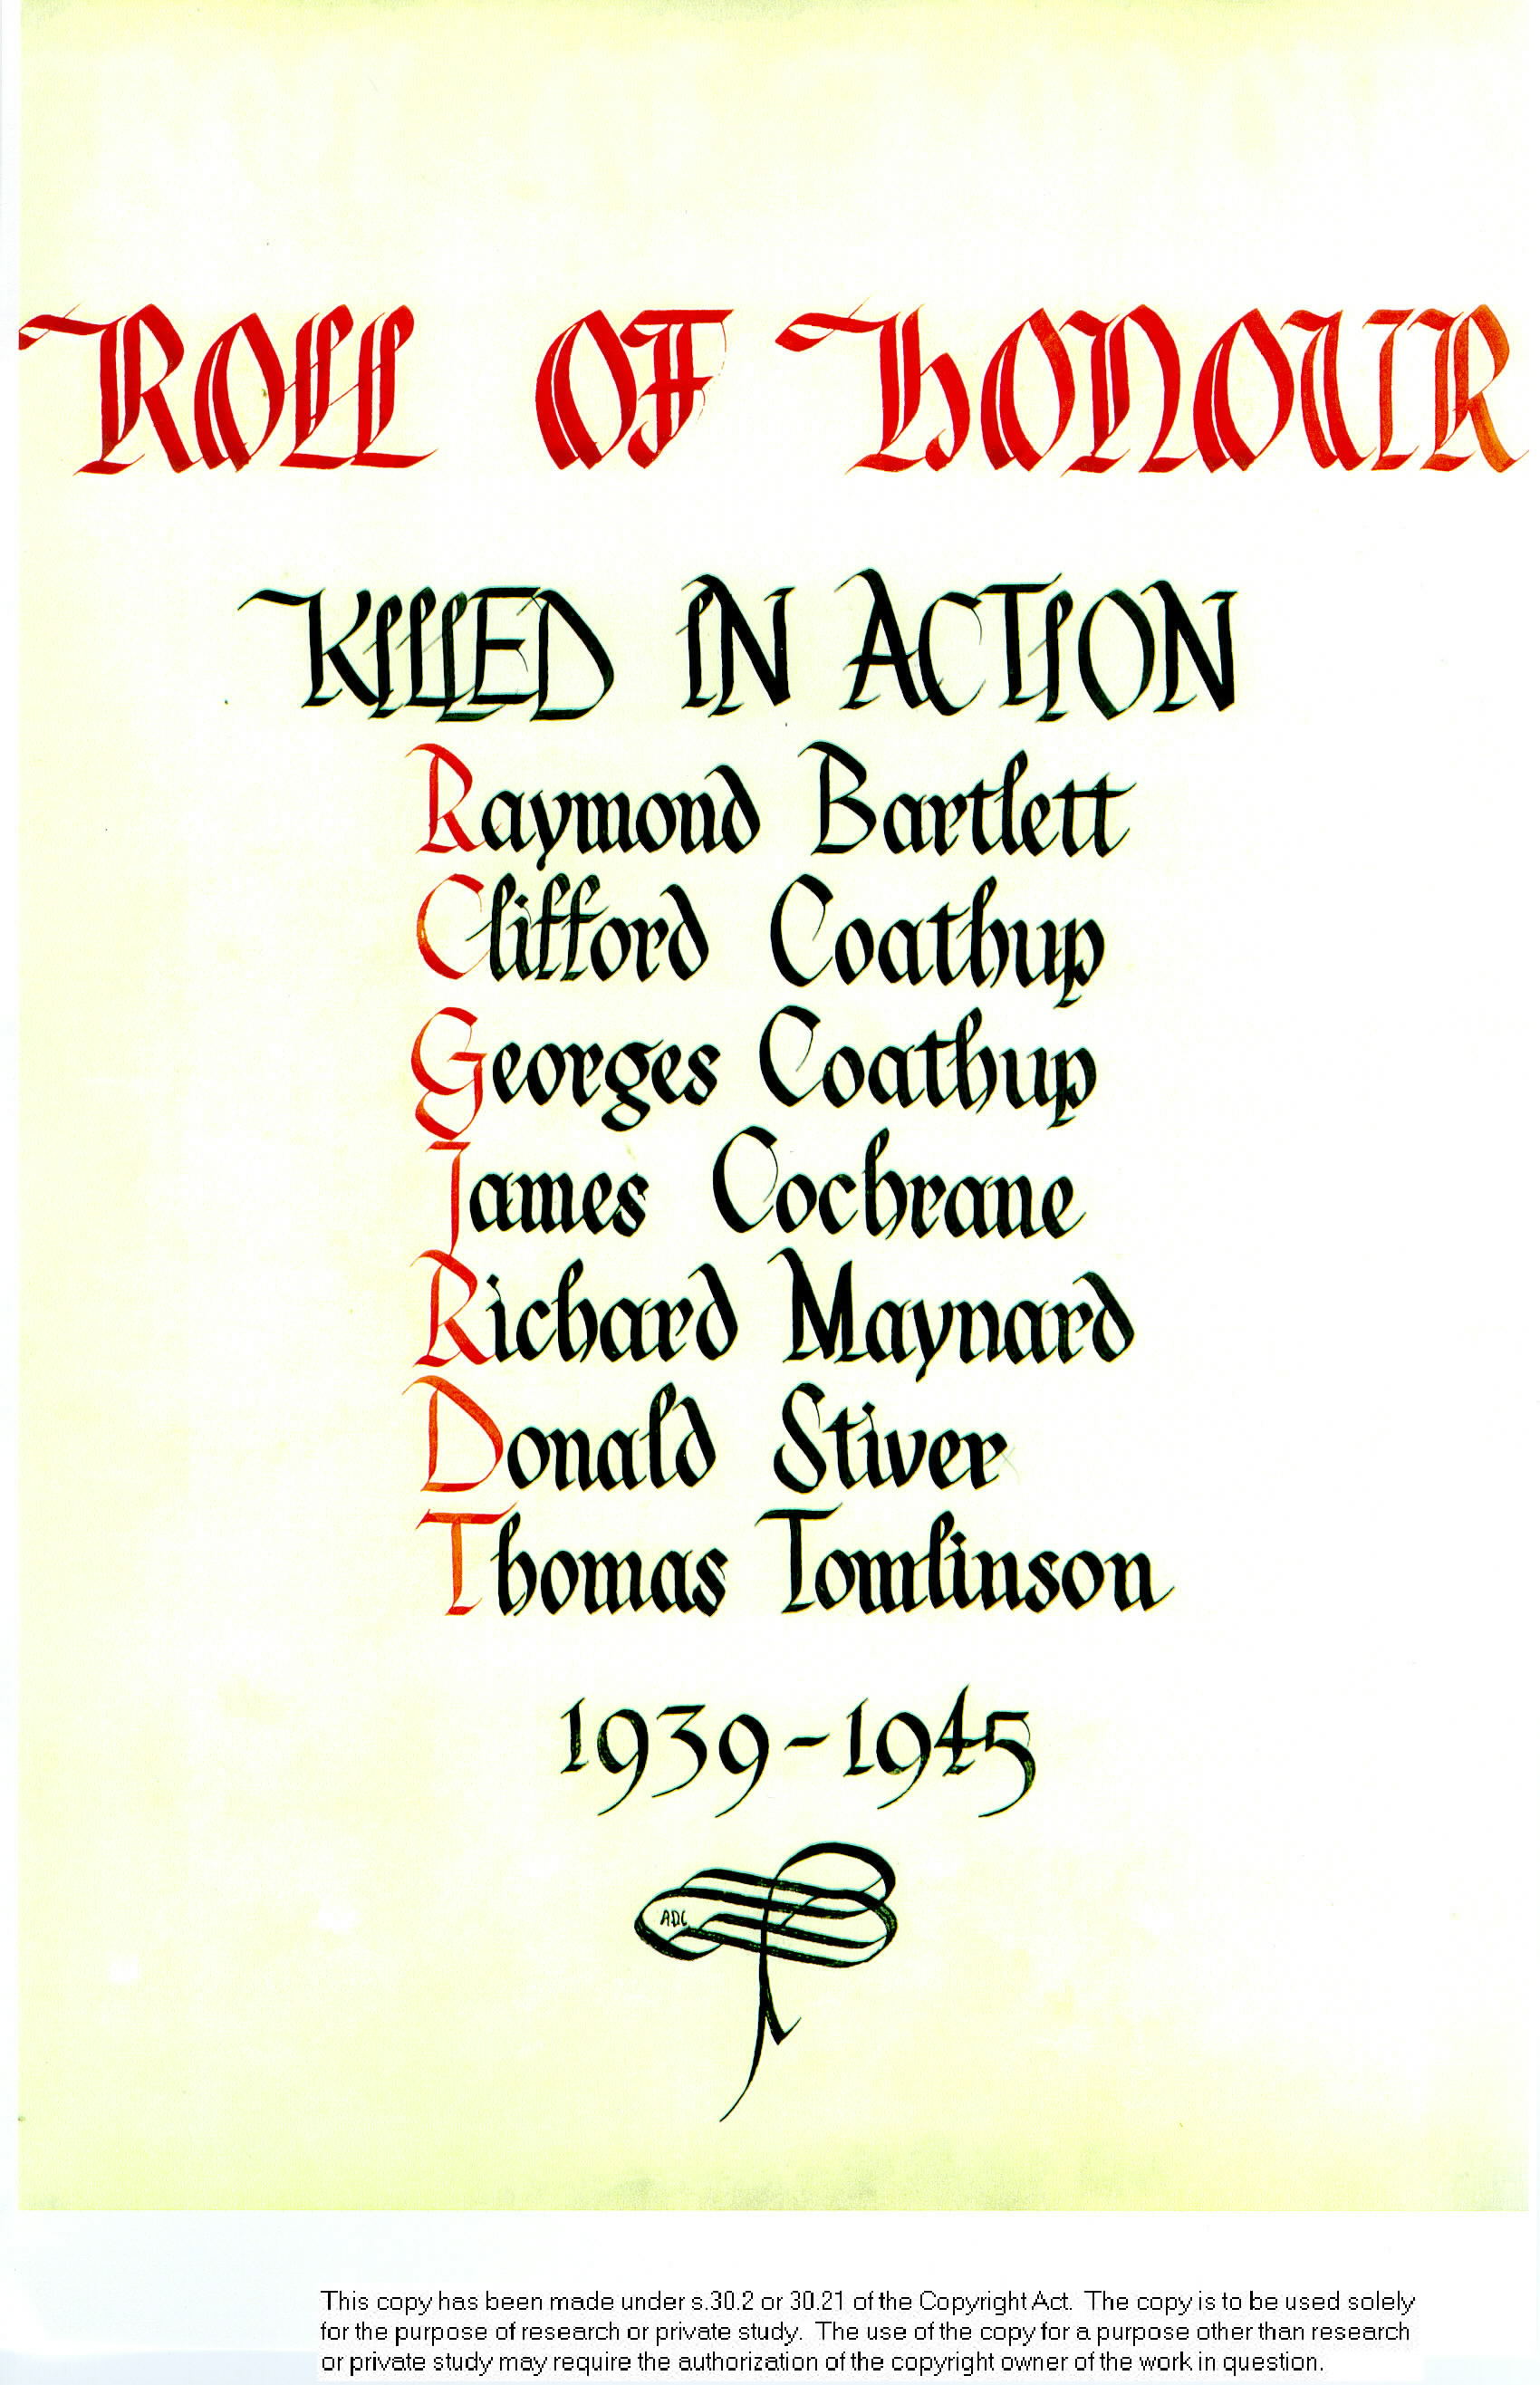 ROLL OF HONOUR
KILLED IN ACTION
Raymond Bartlett
Clifford Coathup
Georges Coathup
James Cochrane
Richard Maynard
Donald Stiver
Thomas Tomlinson
1939-1945
ADC
This copy has been made under s.30.2 or 30.21 of the Copyright Act. The copy is to be used solely
for the purpose of research or private study. The use of the copy for a purpose other than research
or private study may require the authorization of the copyright owner of the work in question.